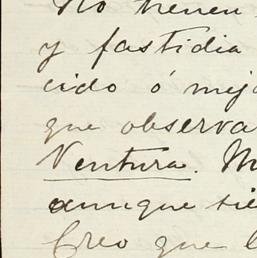 No tienen
y fastidia
cido ó mejo
que observa
Ventura. M
aunque sie
Creo que l